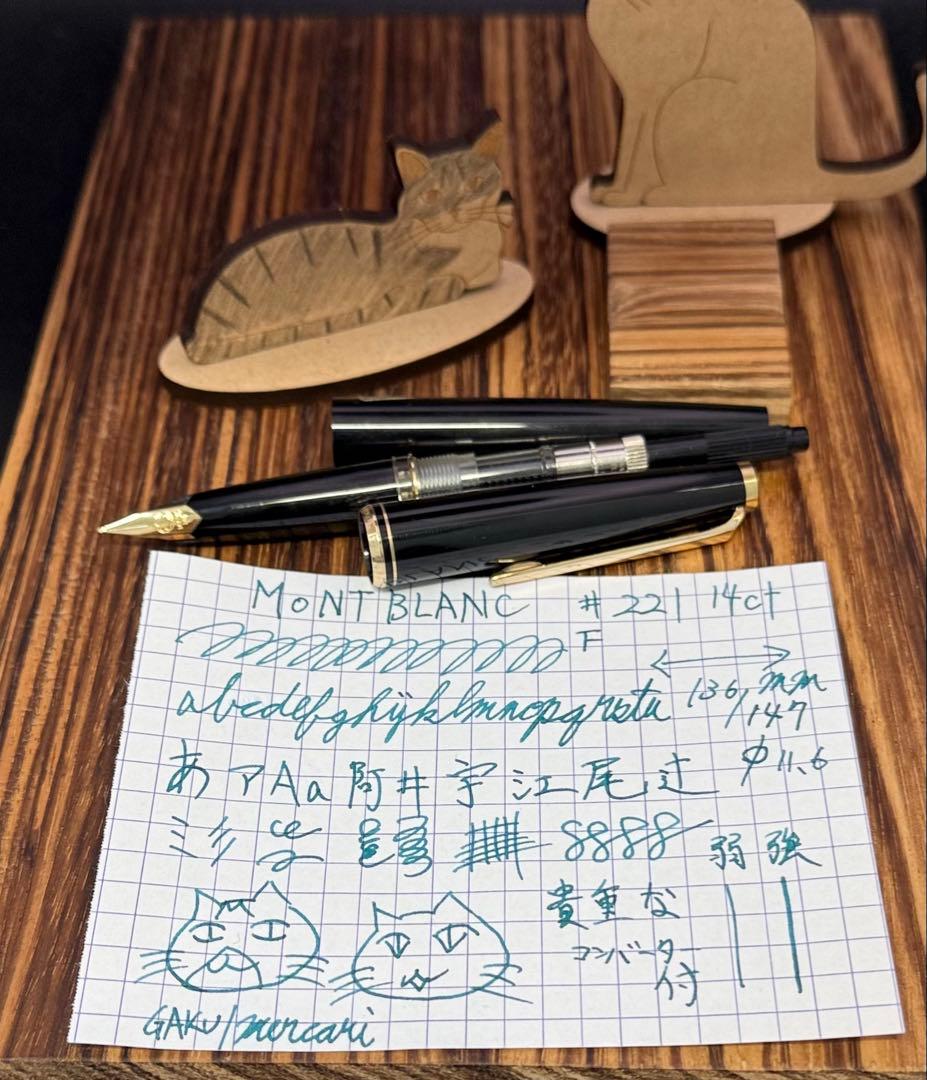 MONTBLANC #221 14ct
F
abcdefghijklmnopqrstu 136/147 mm
φ11.6
あアAa阿井宇江尾辻
8888 弱 強
貴重な
コンバーター
付
GAKU/mercari